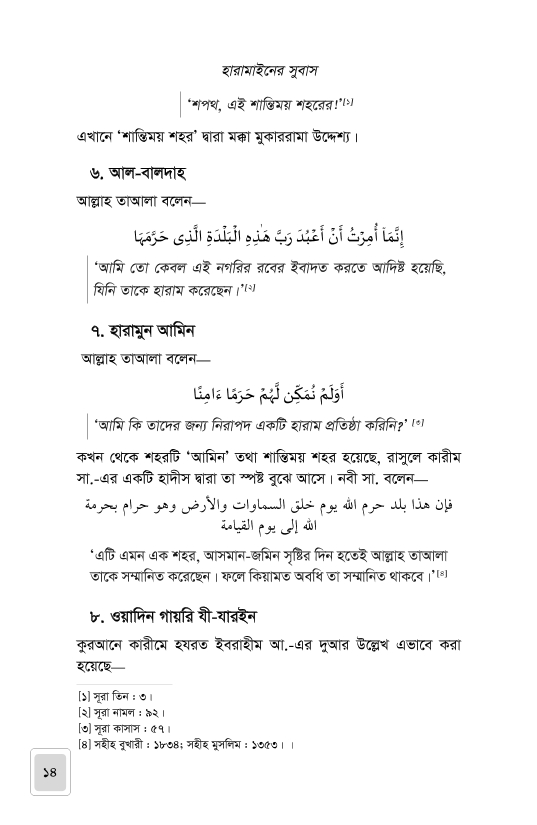 হারামাইনের সুবাস
‘শপথ, এই শান্তিময় শহরের!’[১]
এখানে ‘শান্তিময় শহর’ দ্বারা মক্কা মুকাররামা উদ্দেশ্য।
৬. আল-বালদাহ
আল্লাহ তাআলা বলেন—
إِنَّمَآ أُمِرْتُ أَنْ أَعْبُدَ رَبَّ هَٰذِهِ الْبَلْدَةِ الَّذِى حَرَّمَهَا
‘আমি তো কেবল এই নগরির রবের ইবাদত করতে আদিষ্ট হয়েছি,
যিনি তাকে হারাম করেছেন।’[২]
৭. হারামুন আমিন
আল্লাহ তাআলা বলেন—
أَوَلَمْ نُمَكِّن لَّهُمْ حَرَمًا ءَامِنًا
‘আমি কি তাদের জন্য নিরাপদ একটি হারাম প্রতিষ্ঠা করিনি?’ [৩]
কখন থেকে শহরটি ‘আমিন’ তথা শান্তিময় শহর হয়েছে, রাসুলে কারীম
সা.-এর একটি হাদীস দ্বারা তা স্পষ্ট বুঝে আসে। নবী সা. বলেন—
فإن هذا بلد حرم الله يوم خلق السماوات والأرض وهو حرام بحرمة
الله إلى يوم القيامة
‘এটি এমন এক শহর, আসমান-জমিন সৃষ্টির দিন হতেই আল্লাহ তাআলা
তাকে সম্মানিত করেছেন। ফলে কিয়ামত অবধি তা সম্মানিত থাকবে।’[৪]
৮. ওয়াদিন গায়রি যী-যারইন
কুরআনে কারীমে হযরত ইবরাহীম আ.-এর দুআর উল্লেখ এভাবে করা
হয়েছে—
[১] সূরা তিন : ৩।
[২] সূরা নামল : ৯২।
[৩] সূরা কাসাস : ৫৭।
[৪] সহীহ বুখারী : ১৮৩৪; সহীহ মুসলিম : ১৩৫৩। ।
১৪